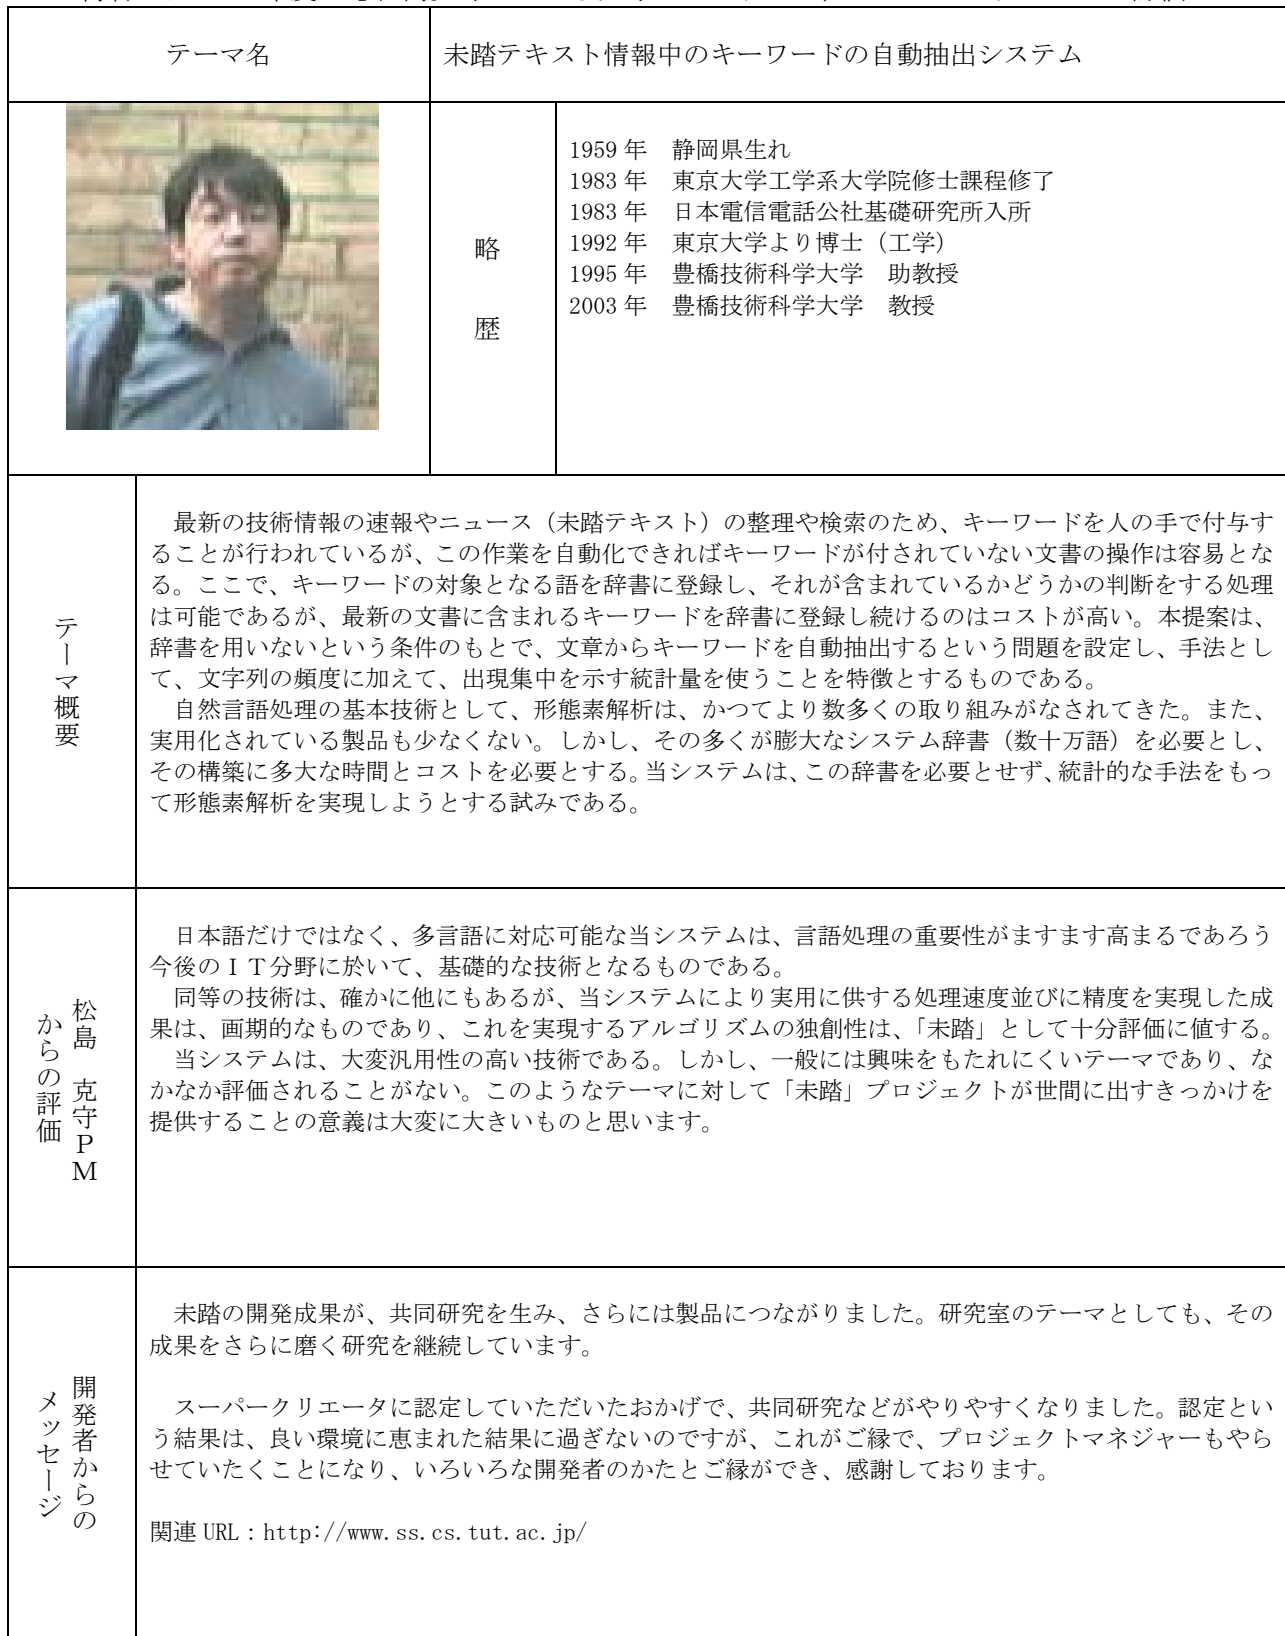 テーマ名
未踏テキスト情報中のキーワードの自動抽出システム
略歴
1959年　静岡県生れ
1983年　東京大学工学系大学院修士課程修了
1983年　日本電信電話公社基礎研究所入所
1992年　東京大学より博士（工学）
1995年　豊橋技術科学大学　助教授
2003年　豊橋技術科学大学　教授
テーマ概要
　最新の技術情報の速報やニュース（未踏テキスト）の整理や検索のため、キーワードを人の手で付与す
ることが行われているが、この作業を自動化できればキーワードが付されていない文書の操作は容易とな
る。ここで、キーワードの対象となる語を辞書に登録し、それが含まれているかどうかの判断をする処理
は可能であるが、最新の文書に含まれるキーワードを辞書に登録し続けるのはコストが高い。本提案は、
辞書を用いないという条件のもとで、文章からキーワードを自動抽出するという問題を設定し、手法とし
て、文字列の頻度に加えて、出現集中を示す統計量を使うことを特徴とするものである。
　自然言語処理の基本技術として、形態素解析は、かつてより数多くの取り組みがなされてきた。また、
実用化されている製品も少なくない。しかし、その多くが膨大なシステム辞書（数十万語）を必要とし、
その構築に多大な時間とコストを必要とする。当システムは、この辞書を必要とせず、統計的な手法をもっ
て形態素解析を実現しようとする試みである。
松島　克守ＰＭ
からの評価
　日本語だけではなく、多言語に対応可能な当システムは、言語処理の重要性がますます高まるであろう
今後のＩＴ分野に於いて、基礎的な技術となるものである。
　同等の技術は、確かに他にもあるが、当システムにより実用に供する処理速度並びに精度を実現した成
果は、画期的なものであり、これを実現するアルゴリズムの独創性は、「未踏」として十分評価に値する。
　当システムは、大変汎用性の高い技術である。しかし、一般には興味をもたれにくいテーマであり、な
かなか評価されることがない。このようなテーマに対して「未踏」プロジェクトが世間に出すきっかけを
提供することの意義は大変に大きいものと思います。
開発者からの
メッセージ
　未踏の開発成果が、共同研究を生み、さらには製品につながりました。研究室のテーマとしても、その
成果をさらに磨く研究を継続しています。
　スーパークリエータに認定していただいたおかげで、共同研究などがやりやすくなりました。認定とい
う結果は、良い環境に恵まれた結果に過ぎないのですが、これがご縁で、プロジェクトマネジャーもやら
せていたくことになり、いろいろな開発者のかたとご縁ができ、感謝しております。
関連 URL：http://www.ss.cs.tut.ac.jp/